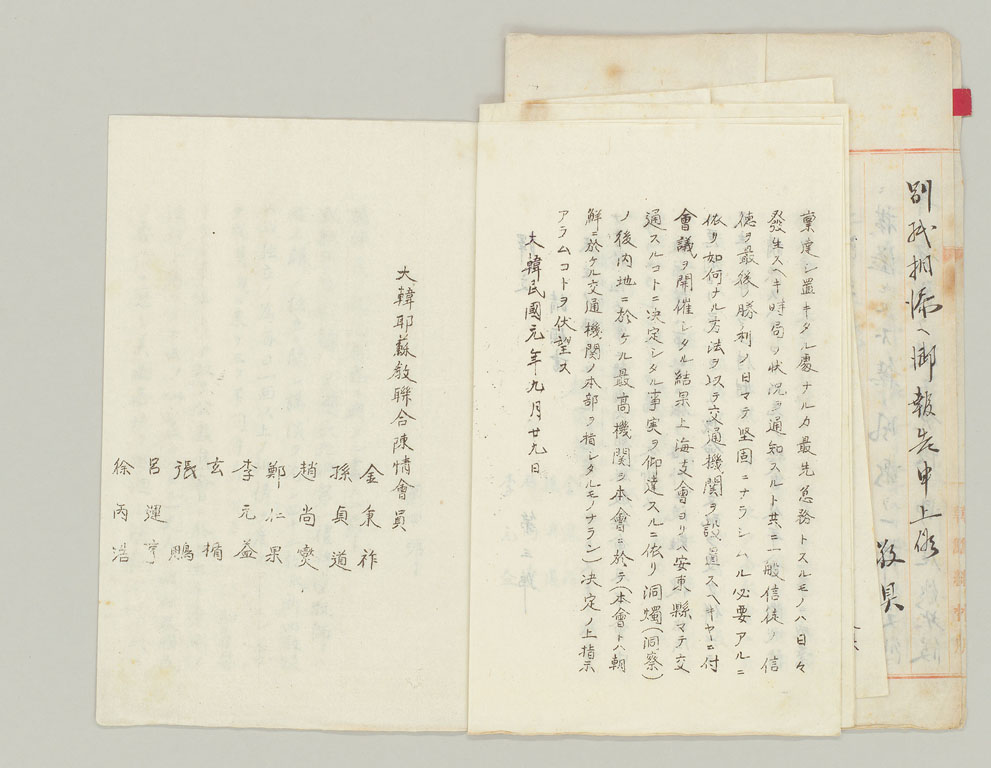 別紙相添ヘ御報告申上候
敬具
稟達シ置キタル處ナルカ最先急務トスルモノハ日々
發生スヘキ時局ノ狀况ヲ通知スルト共ニ一般信徒ノ信
德ヲ最後ノ勝利ノ日マテ堅固ニナラシムル必要アルニ
依リ如何ナル方法ヲ以テ交通機関ヲ設置スヘキヤニ付
會議ヲ開催シタル結果上海支會ヨリ安東縣マテ交
通スルコトニ決定シタル事実ヲ仰達スルニ依リ洞燭(洞察)
ノ後内地ニ於ケル最高機関ヲ本會ニ於テ(本會トハ朝
鮮ニ於ケル交通機関ノ本部ヲ指シタルモノナラン)決定ノ上指示
アラムコトヲ伏望ス
大韓民國元年九月廿九日
大韓耶蘇敎聯合陳情會員
金秉祚
孫貞道
趙尚爕
鄭仁果
李元益
玄楯
張鵬
呂運亨
徐丙浩